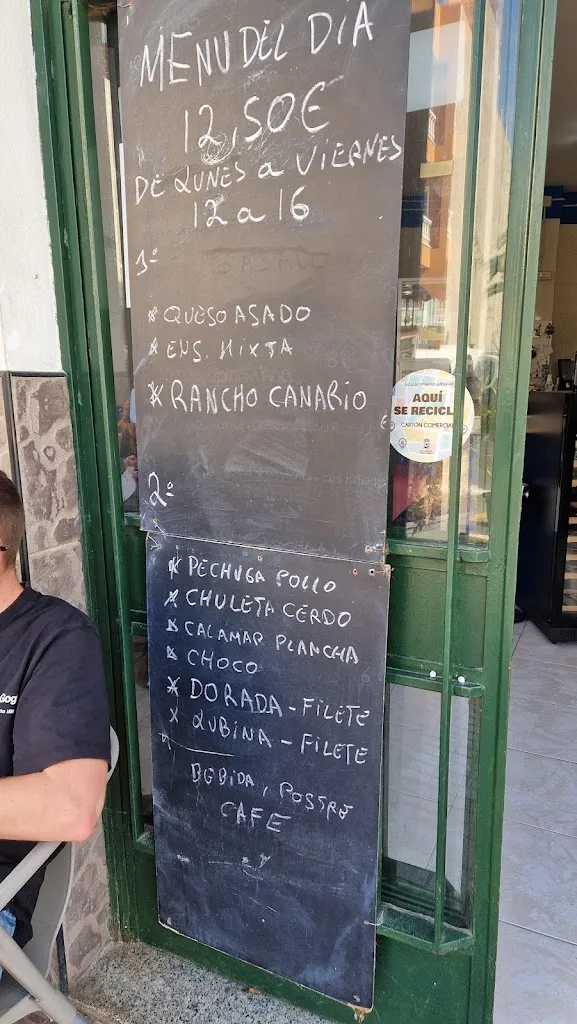 MENU DEL DIA
12,50€
DE LUNES a VIERNES
12 a 16
1º
* QUESO ASADO
* ENS. MIXTA
* RANCHO CANARIO
2º
* PECHUGA POLLO
* CHULETA CERDO
* CALAMAR PLANCHA
* CHOCO
* DORADA - FILETE
* LUBINA - FILETE
BEBIDA, POSTRE
CAFE
AQUÍ
SE RECICL
CARTÓN COMERCIAL